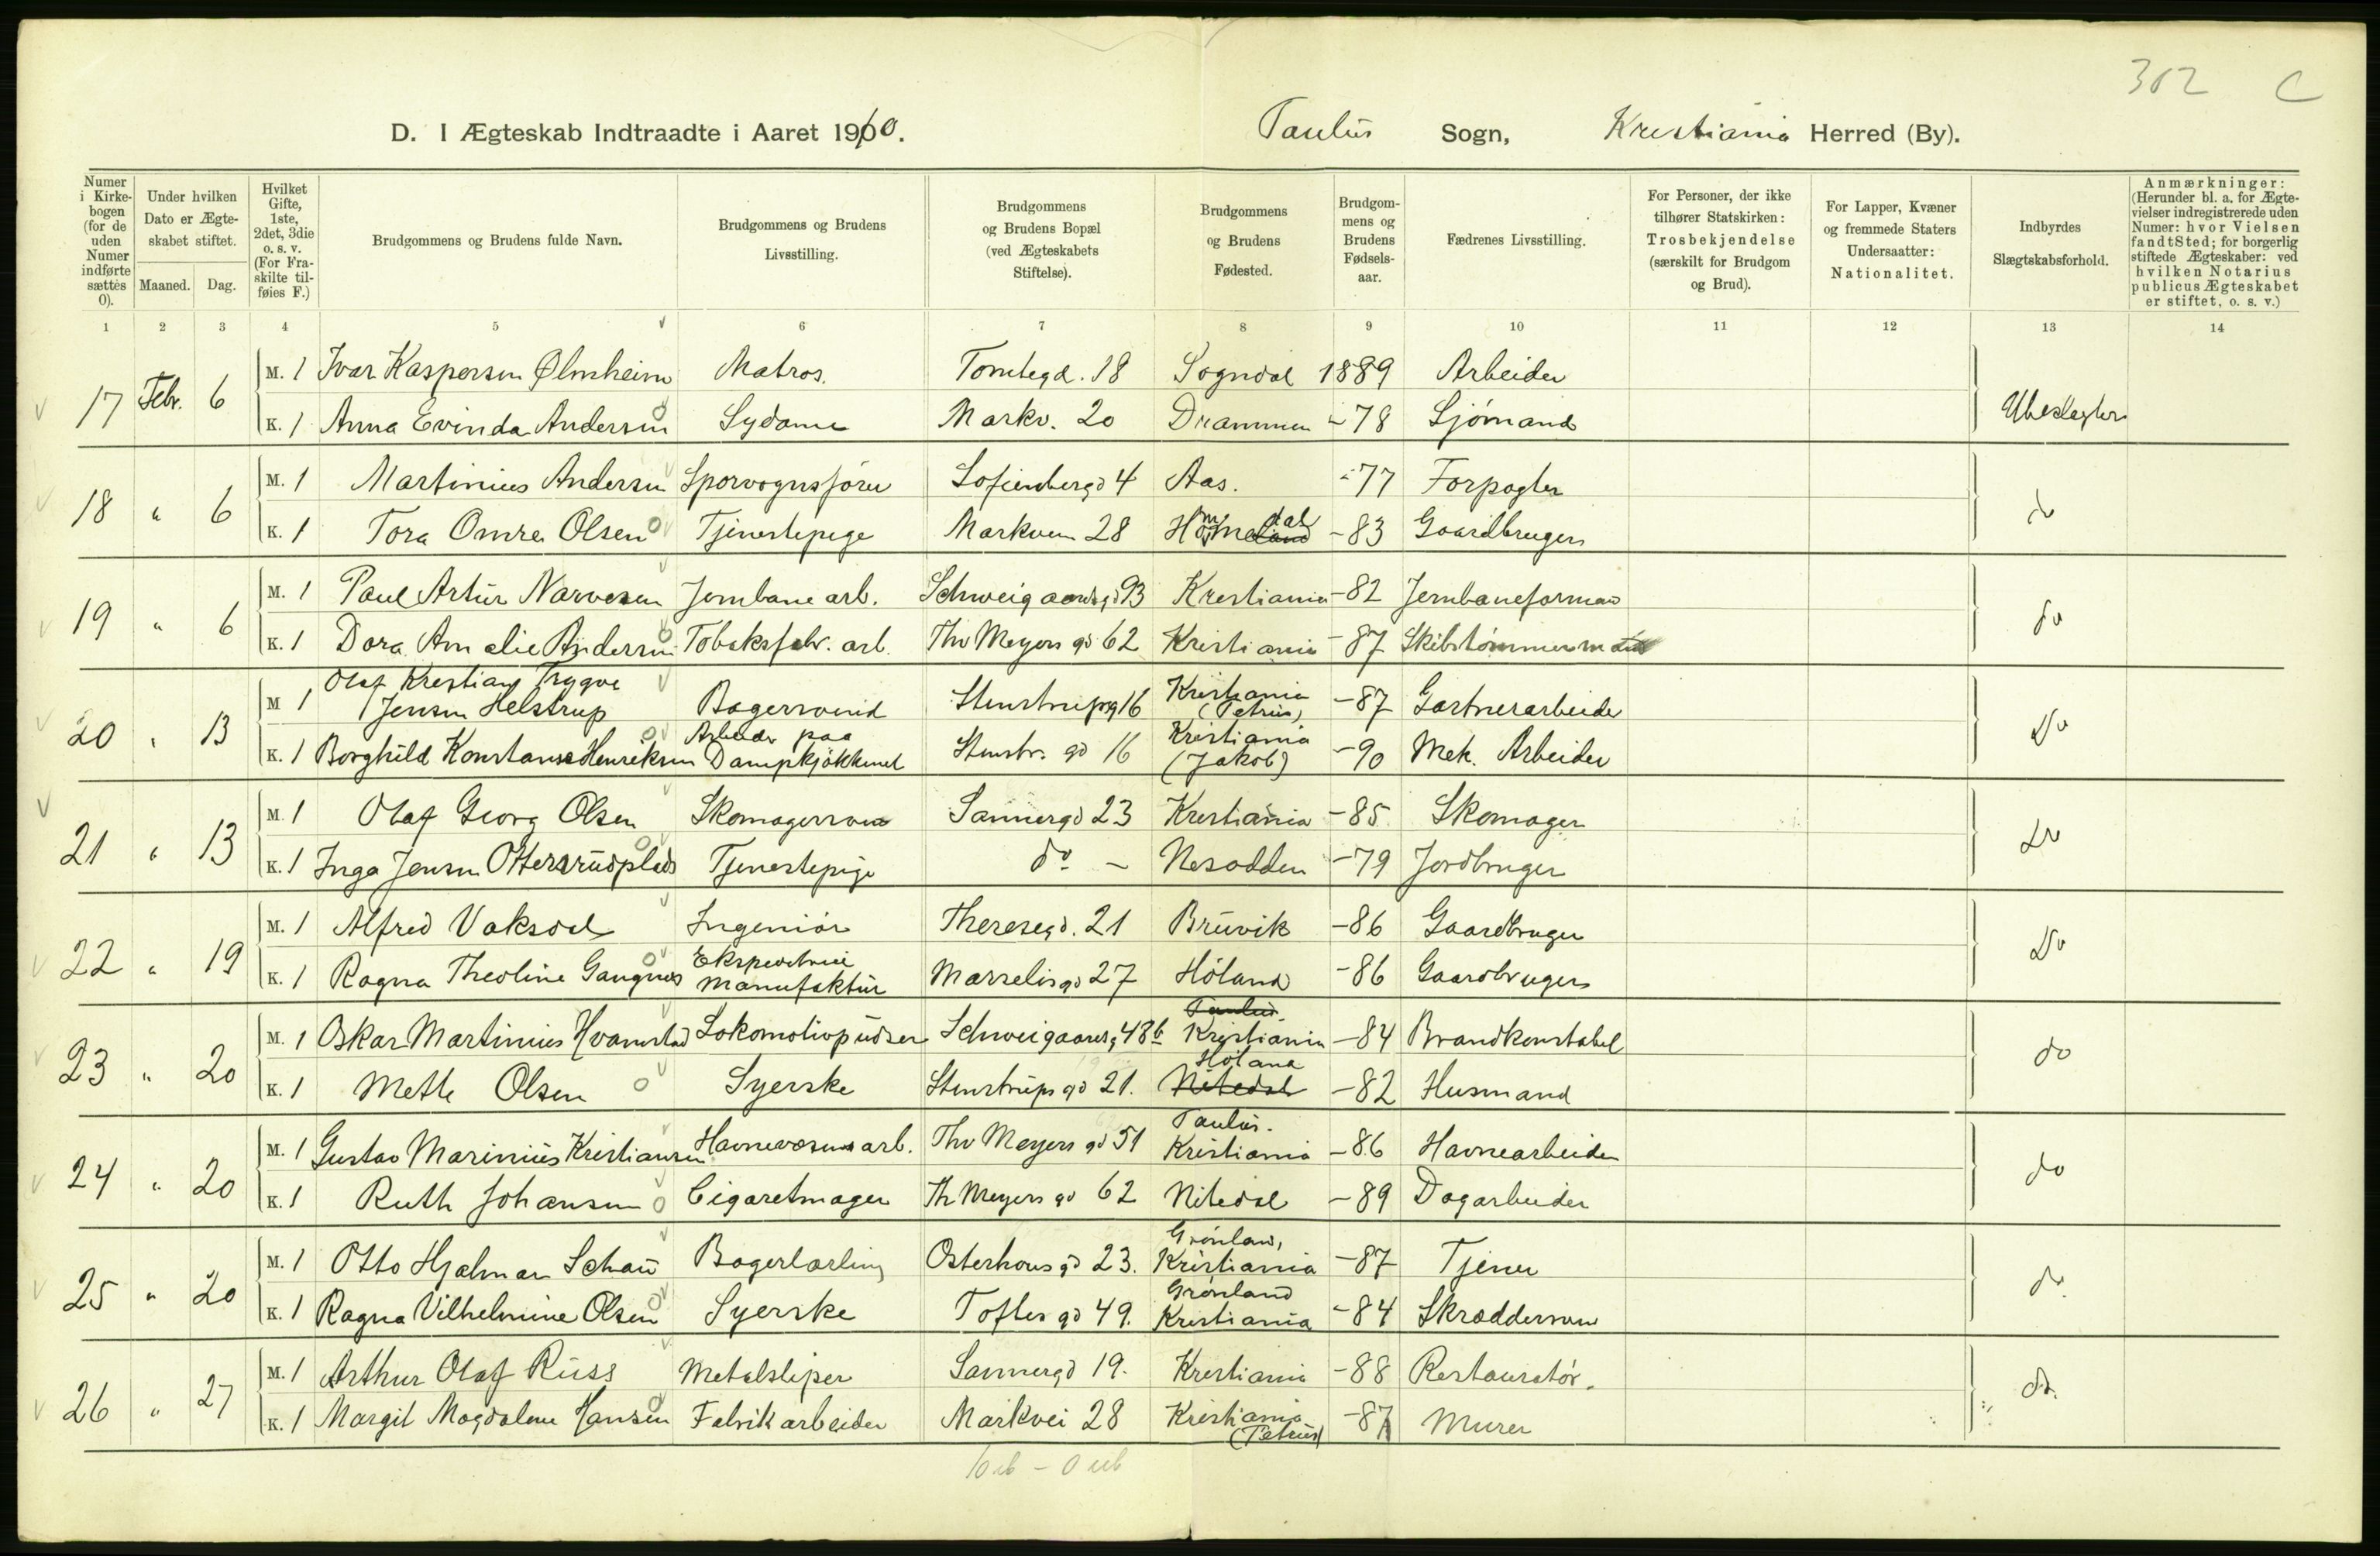 302 C
D. I Ægteskab Indtraadte i Aaret 1910. Paulus Sogn, Kristiania Herred (By).
Numer i Kirkebogen (for de uden Numer indførte sættes 0).
Under hvilken Dato er Ægteskabet stiftet.
Maaned. Dag.
Hvilket Gifte, 1ste, 2det, 3die o. s. v. (For Fraskilte tilføies F.)
Brudgommens og Brudens fulde Navn.
Brudgommens og Brudens Livsstilling.
Brudgommens og Brudens Bopæl (ved Ægteskabets Stiftelse).
Brudgommens og Brudens Fødested.
Brudgommens og Brudens Fødselsaar.
Fædrenes Livsstilling.
For Personer, der ikke tilhører Statskirken: Trosbekjendelse (særskilt for Brudgom og Brud).
For Lapper, Kvæner og fremmede Staters Undersaatter: Nationalitet.
Indbyrdes Slægtskabsforhold.
Anmærkninger: (Herunder bl. a. for Ægtevielser indregistrerede uden Numer: hvor Vielsen fandt Sted; for borgerlig stiftede Ægteskaber: ved hvilken Notarius publicus Ægteskabet er stiftet, o. s. v.)
1 2 3 4 5 6 7 8 9 10 11 12 13 14
17 Febr. 6 M. 1 Ivar Kaspersen Ølmheim Matros. Tomtegd. 18 Sogndal 1889 Arbeider
K. 1 Anna Evinda Andersen Sydame Markv. 20 Drammen -78 Sjömand Ubeslegtet
18 " 6 M. 1 Martinius Andersen Sporvognsförer Sofienbergd 4 Aas. -77 Forpagter
K. 1 Tora Omre Olsen Tjenestepige Markven 28 Hommedal -83 Gaardbruger do
19 " 6 M. 1 Paul Artur Narvesen Jernbanearb. Schweigaardsgd 93 Kristiania -82 Jernbaneformand
K. 1 Dora Amalie Andersen Tobaksfabr. arb. Thv Meyers gd 62 Kristiania -87 Skibstömmermand do
20 " 13 M 1 Olaf Kristian Trygve Jensen Helstrup Bagersvend Stenstrupsg 16 Kristiania (Petrus) -87 Gartnerarbeider
K. 1 Borghild Konstanse Henriksen Arbeider paa Dampkjökkenet Stenstr. gd 16 Kristiania (Jakob) -90 Mek. Arbeider Do
21 " 13 M. 1 Olaf Georg Olsen Skomagersvend Sannergd 23 Kristiania -85 Skomager
K. 1 Inga Jensen Ottersrudplads Tjenestepige do - Nesodden -79 Jordbruger Do
22 " 19 M. 1 Alfred Vaksdal Ingeniör Theresegd. 21 Bruvik -86 Gaardbruger
K. 1 Ragna Theoline Gangnes Ekspeditrice Manufaktur Marselisgd 27 Höland -86 Gaardbruger Do
23 " 20 M. 1 Oskar Martinius Hvamstad Lokomotivpudser Schweigaardsg 48b Paulus Kristiania -84 Brandkonstabel
K. 1 Mette Olsen Syerske Stenstrups gd 21. Höland Nitedal -82 Husmand do
24 " 20 M. 1 Gustav Marinius Kristiansen Havnevæsens arb. Thv Meyers gd 51 Paulus. Kristiania -86 Havnearbeider
K. 1 Ruth Johansen Cigaretmager Th Meyers gd 62 Nitedal -89 Dagarbeider do
25 " 20 M. 1 Otto Hjalmar Schau Bagerlærling Osterhausgd 23. Grönland, Kristiania -87 Tjener
K. 1 Ragna Vilhelmine Olsen Syerske Toftes gd 49. Grönland Kristiania -84 Skræddersvend do
26 " 27 M. 1 Arthur Olaf Russ Metalsliper Sannergd 19. Kristiania -88 Restauratör.
K. 1 Margit Magdalene Hansen Fabrikarbeider Markvei 28 Kristiania (Petrus) -87 Murer do.
10 ub - 0 ub